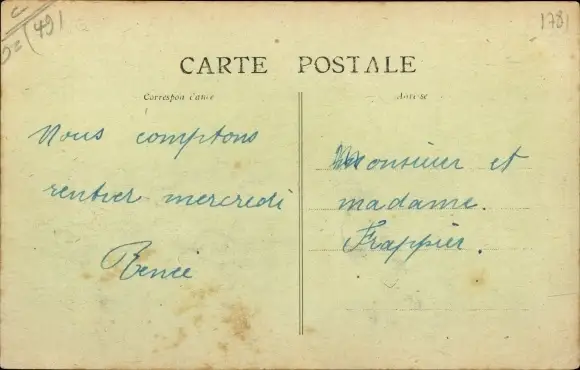 (49)
1781
CARTE POSTALE
Correspondance
Adresse
Nous comptons
rentrer mercredi
Renée
Monsieur et
madame.
Frappier.